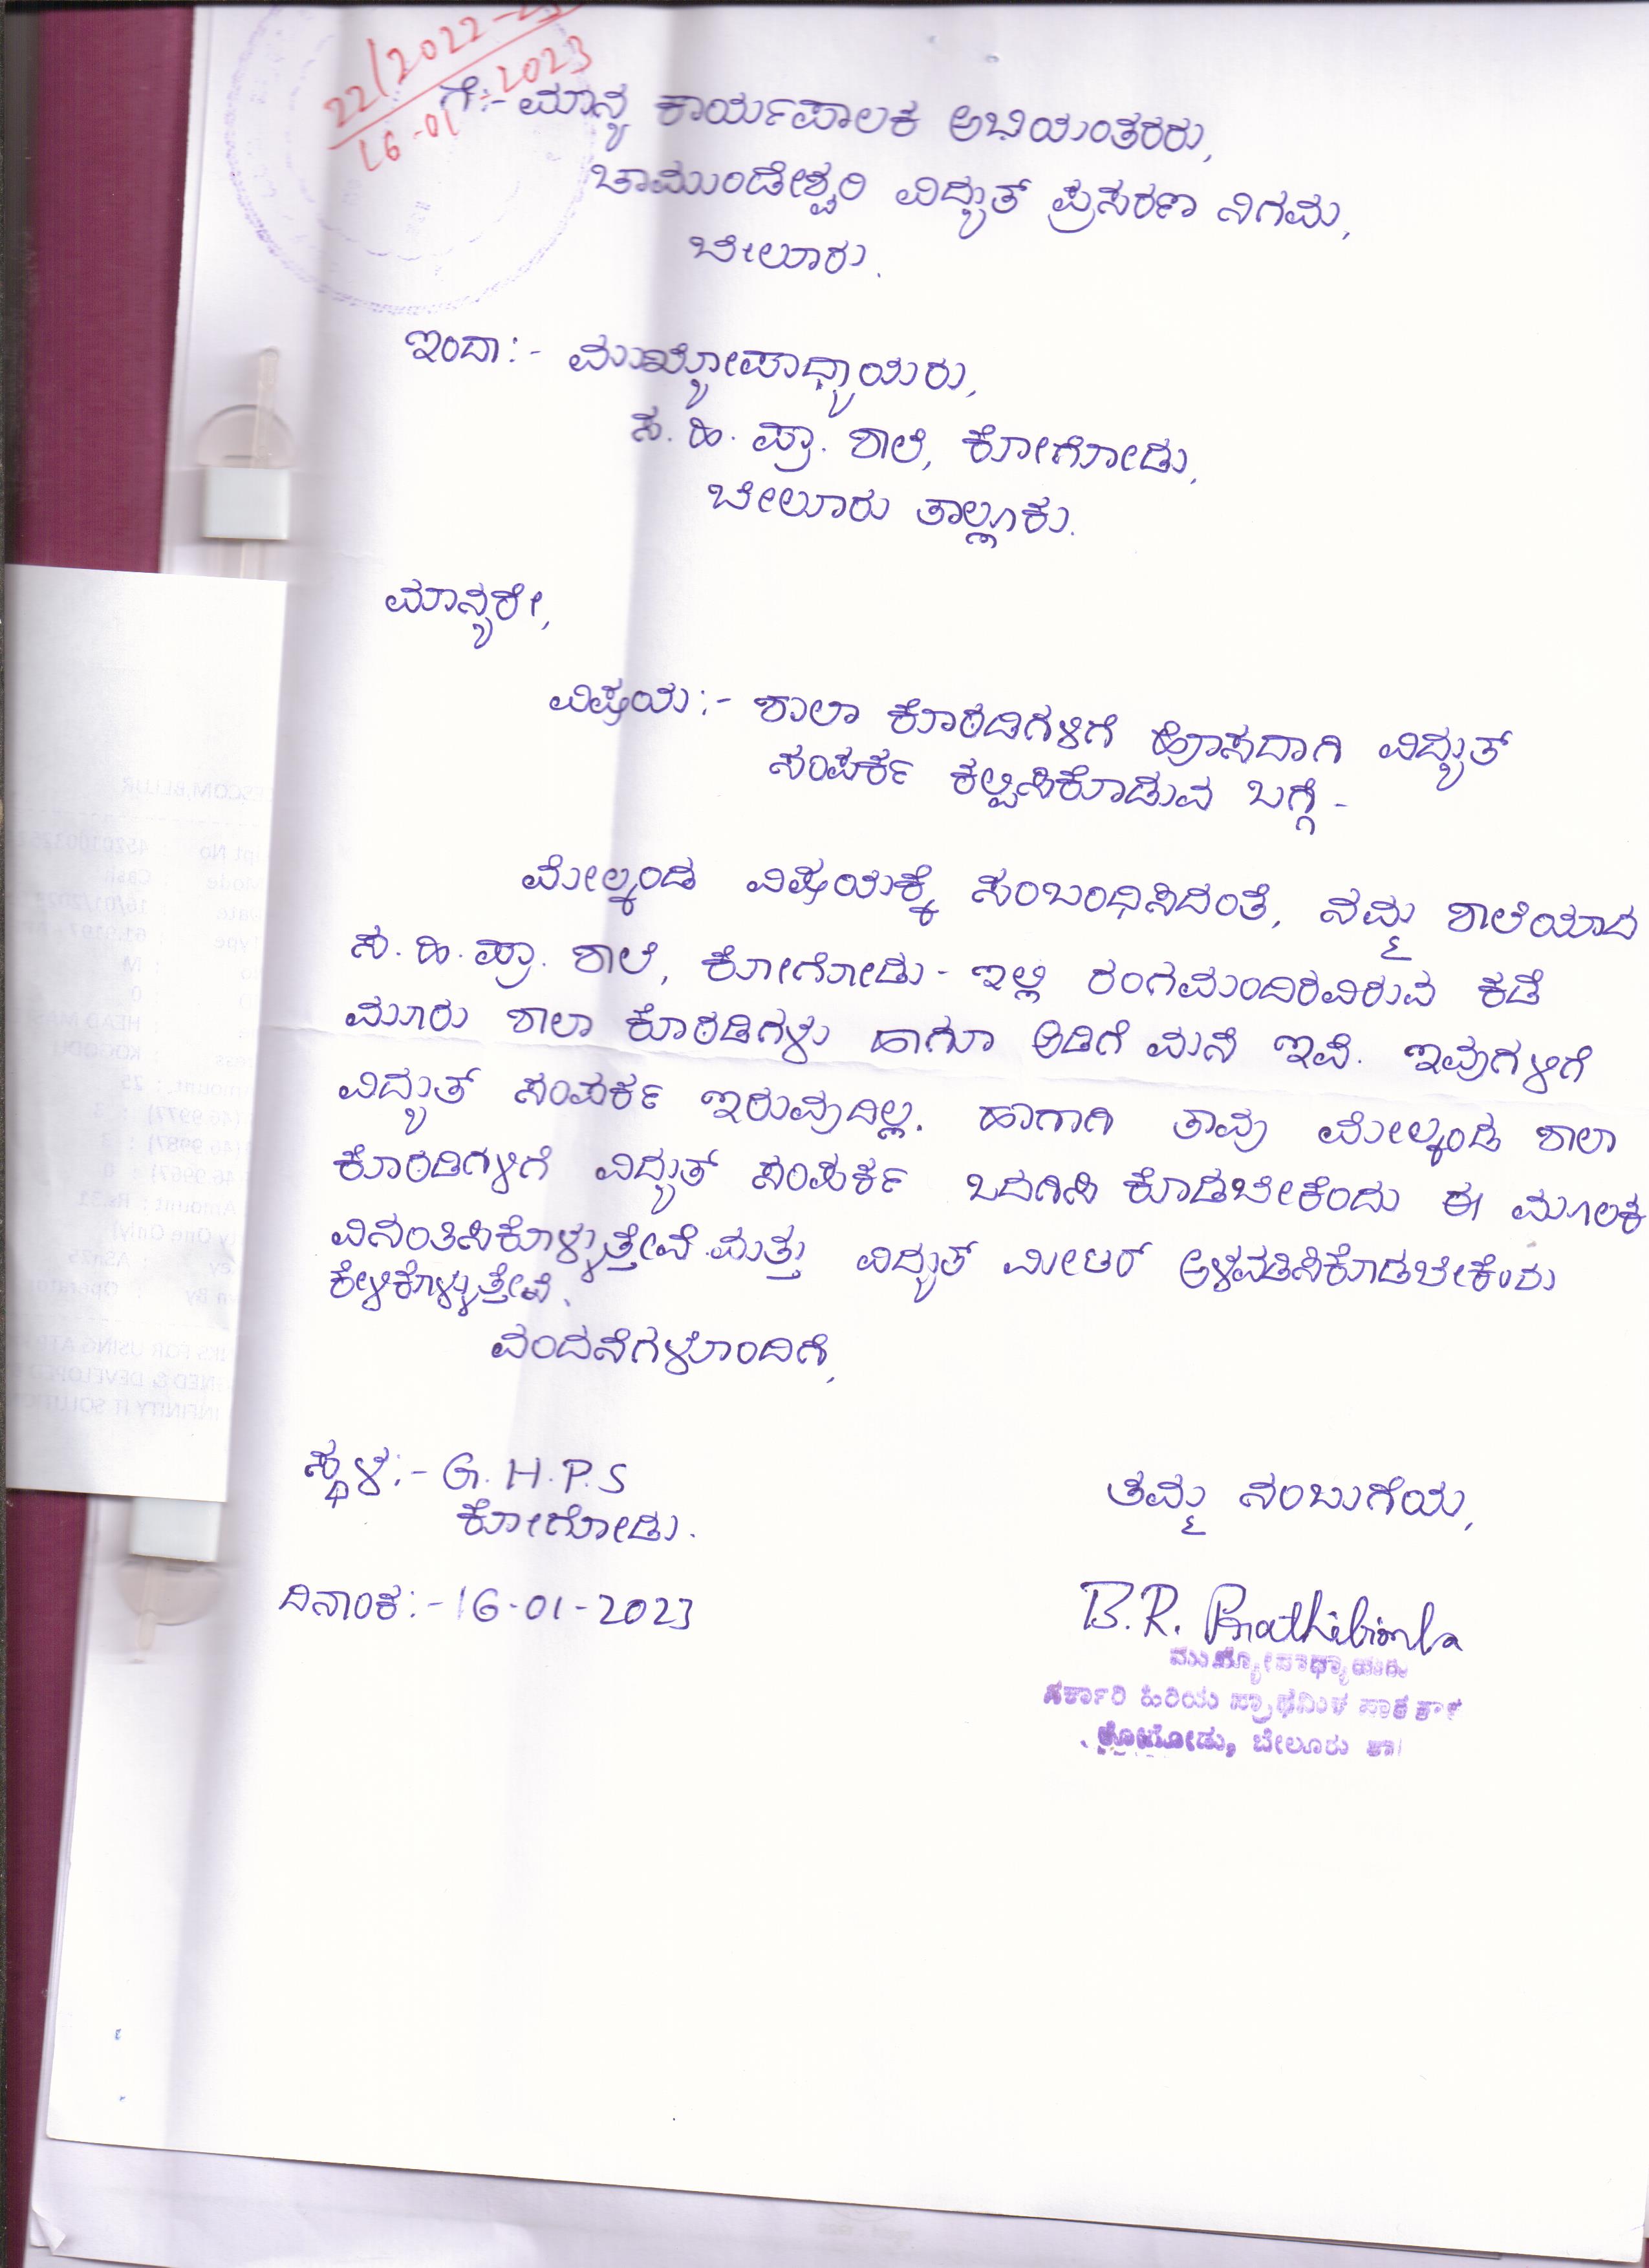 22/2022-23
16-01-2023
ಗೆ:- ಮಾನ್ಯ ಕಾರ್ಯಪಾಲಕ ಅಭಿಯಂತರರು,
ಚಾಮುಂಡೇಶ್ವರಿ ವಿದ್ಯುತ್ ಪ್ರಸರಣ ನಿಗಮ,
ಬೇಲೂರು.
ಇಂದಾ:- ಮುಖ್ಯೋಪಾಧ್ಯಾಯಿರು,
ಸ. ಹಿ. ಪ್ರಾ. ಶಾಲೆ, ಕೋಗೋಡು,
ಬೇಲೂರು ತಾಲ್ಲೂಕು.
ಮಾನ್ಯರೇ,
ವಿಷಯ:- ಶಾಲಾ ಕೊಠಡಿಗಳಿಗೆ ಹೊಸದಾಗಿ ವಿದ್ಯುತ್
ಸಂಪರ್ಕ ಕಲ್ಪಿಸಿಕೊಡುವ ಬಗ್ಗೆ -
ಮೇಲ್ಕಂಡ ವಿಷಯಕ್ಕೆ ಸಂಬಂಧಿಸಿದಂತೆ, ನಮ್ಮ ಶಾಲೆಯಾದ
ಸ. ಹಿ. ಪ್ರಾ. ಶಾಲೆ, ಕೋಗೋಡು - ಇಲ್ಲಿ ರಂಗಮಂದಿರವಿರುವ ಕಡೆ
ಮೂರು ಶಾಲಾ ಕೊಠಡಿಗಳು ಹಾಗೂ ಅಡಿಗೆ ಮನೆ ಇವೆ. ಇವುಗಳಿಗೆ
ವಿದ್ಯುತ್ ಸಂಪರ್ಕ ಇರುವುದಿಲ್ಲ. ಹಾಗಾಗಿ ತಾವು ಮೇಲ್ಕಂಡ ಶಾಲಾ
ಕೊಠಡಿಗಳಿಗೆ ವಿದ್ಯುತ್ ಸಂಪರ್ಕ ಒದಗಿಸಿ ಕೊಡಬೇಕೆಂದು ಈ ಮೂಲಕ
ವಿನಂತಿಸಿಕೊಳ್ಳುತ್ತೇವೆ. ಮತ್ತು ವಿದ್ಯುತ್ ಮೀಟರ್ ಅಳವಡಿಸಿಕೊಡಬೇಕೆಂದು
ಕೇಳಿಕೊಳ್ಳುತ್ತೇವೆ.
ವಂದನೆಗಳೊಂದಿಗೆ,
ಸ್ಥಳ:- G. H. P. S
ಕೋಗೋಡು.
ತಮ್ಮ ನಂಬುಗೆಯ,
ದಿನಾಂಕ:- 16-01-2023
B.R. Prathibimba
ಮುಖ್ಯೋಪಾಧ್ಯಾಯರು
ಸರ್ಕಾರಿ ಹಿರಿಯ ಪ್ರಾಥಮಿಕ ಪಾಠಶಾಲೆ
ಕೋಗೋಡು, ಬೇಲೂರು ತಾ|